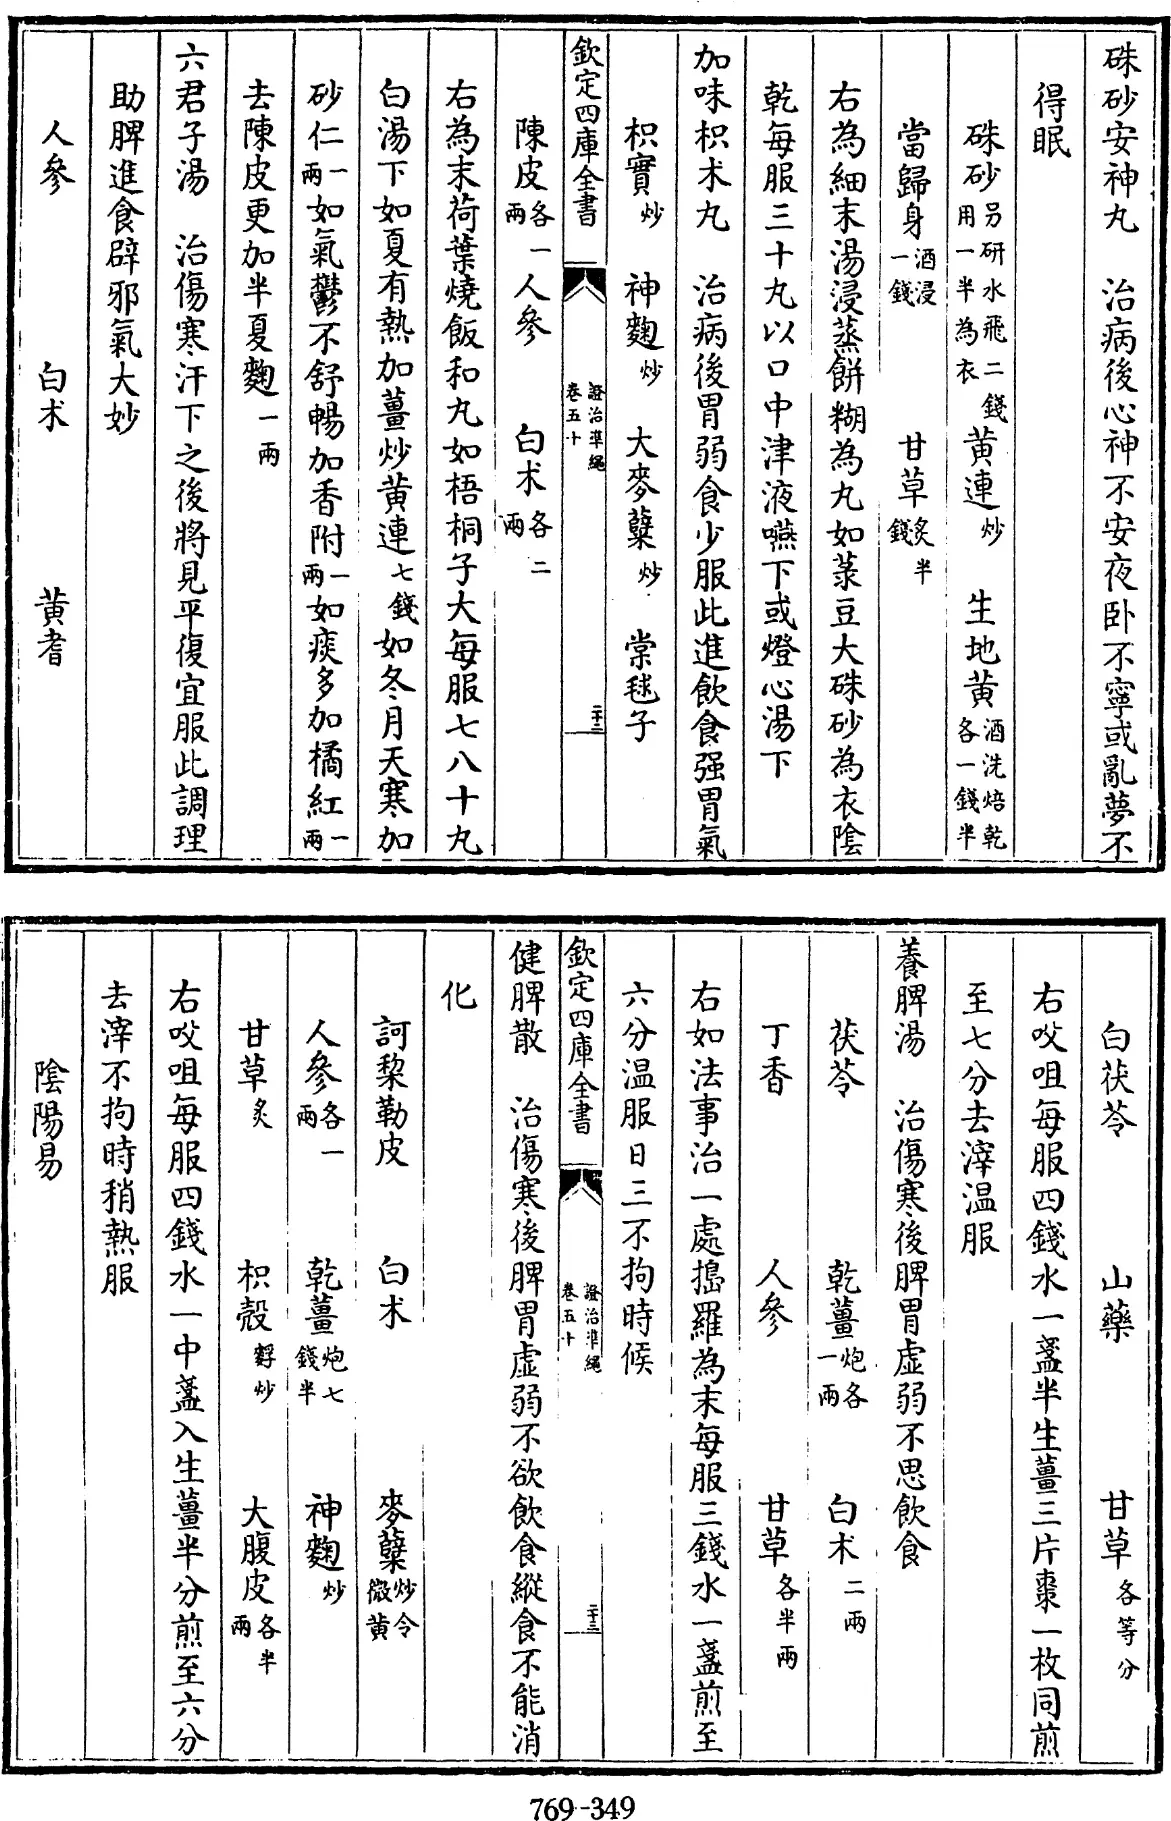 硃砂安神丸　治病後心神不安夜卧不寧或亂夢不
得眠
硃砂另研水飛二錢用一半為衣　黄連炒　生地黄酒洗焙乾各一錢半
當歸身酒浸一錢　甘草炙半錢
右為細末湯浸蒸餅糊為丸如菉豆大硃砂為衣陰
乾每服三十丸以口中津液嚥下或燈心湯下
加味枳术丸　治病後胃弱食少服此進飲食强胃氣
枳實炒　神麴炒　大麥櫱炒　棠毬子
欽定四庫全書　證治準繩卷五十　二十三
陳皮各一兩　人參　白术各二兩
右為末荷葉燒飯和丸如梧桐子大每服七八十丸
白湯下如夏有熱加薑炒黄連七錢如冬月天寒加
砂仁一兩如氣鬱不舒暢加香附一兩如痰多加橘紅一兩
去陳皮更加半夏麴一兩
六君子湯　治傷寒汗下之後將見平復宜服此調理
助脾進食辟邪氣大妙
人參　白术　黄耆
白茯苓　山藥　甘草各等分
右㕮咀每服四錢水一盞半生薑三片棗一枚同煎
至七分去滓温服
養脾湯　治傷寒後脾胃虚弱不思飲食
茯苓　乾薑炮各一兩　白术二兩
丁香　人參　甘草各半兩
右如法事治一處搗羅為末每服三錢水一盞煎至
六分温服日三不拘時候
欽定四庫全書　證治準繩卷五十　二十三
健脾散　治傷寒後脾胃虚弱不欲飲食縱食不能消
化
訶棃勒皮　白术　麥櫱炒令微黄
人參各一兩　乾薑炮七錢半　神麴炒
甘草炙　枳殼麩炒　大腹皮各半兩
右㕮咀每服四錢水一中盞入生薑半分煎至六分
去滓不拘時稍熱服
陰陽易
769-349